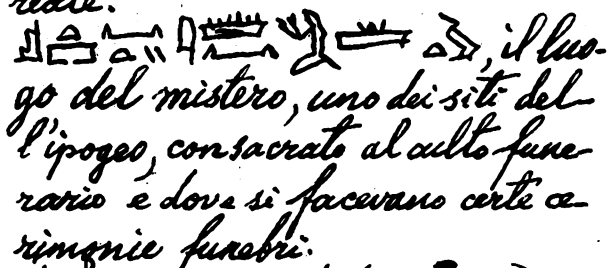 reale.
, il luo-
go del mistero, uno dei siti del-
l'ipogeo, consacrato al culto fune-
rario e dove si facevano certe ce-
rimonie funebri.